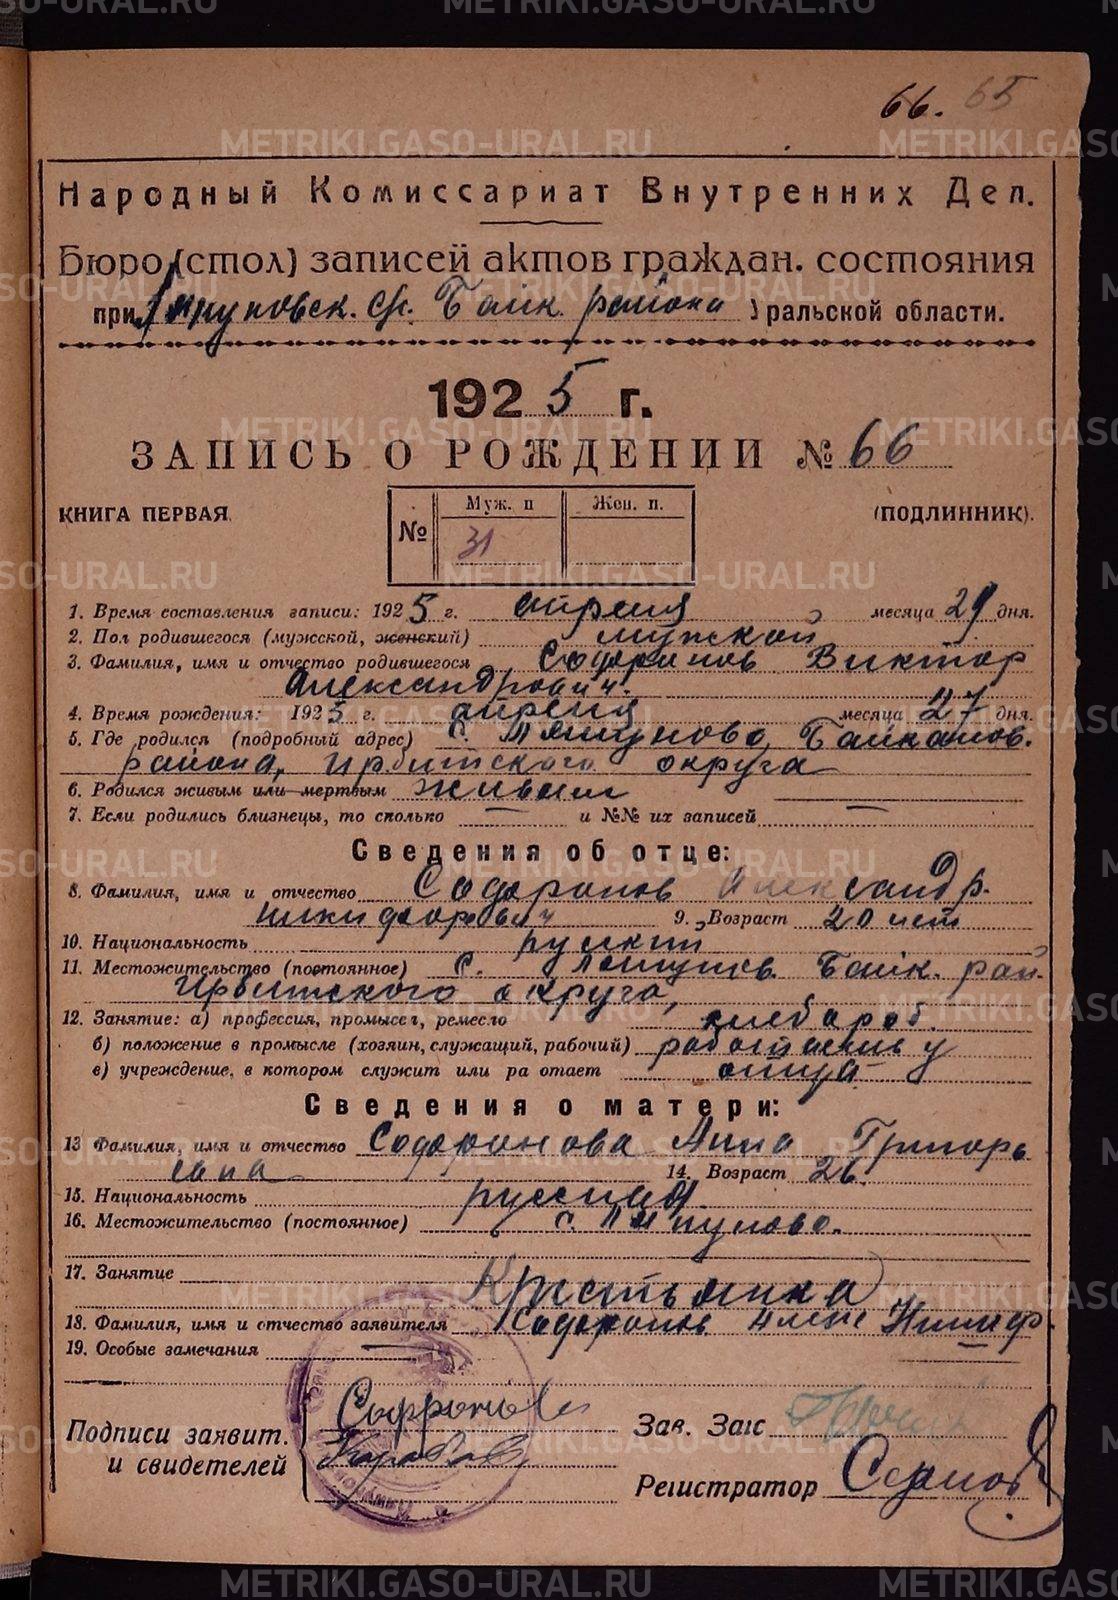 66. 65
Народный Комиссариат Внутренних Дел.
Бюро (стол) записей актов граждан. состояния
при Ляпуновск. с/с. Байк. района Уральской области.
1925 г.
ЗАПИСЬ О РОЖДЕНИИ № 66
КНИГА ПЕРВАЯ
(ПОДЛИННИК).
№ Муж. п Жен. п.
31
1. Время составления записи: 1925 г. апреля месяца 29 дня.
2. Пол родившегося (мужской, женский) мужской
3. Фамилия, имя и отчество родившегося Виктор
Александрович.
4. Время рождения: 1925 г. апреля месяца 27 дня.
5. Где родился (подробный адрес) с. Ляпуново, Байкалов.
района, Ирбитского округа
6. Родился живым или мертвым живым
7. Если родились близнецы, то сколько и №№ их записей
Сведения об отце:
8. Фамилия, имя и отчество Александр
Никифорович 9. Возраст 20 лет
10. Национальность руский
11. Местожительство (постоянное) с. Байк. рай
Ирбитского округа,
12. Занятие: а) профессия, промысел, ремесло хлебороб.
б) положение в промысле (хозяин, служащий, рабочий) у
в) учреждение, в котором служит или ра отает отца
Сведения о матери:
13 Фамилия, имя и отчество Анна Григорь
14. Возраст 26.
15. Национальность русская
16. Местожительство (постоянное) с. Ляпуново.
17. Занятие Крестьянка
18. Фамилия, имя и отчество заявителя
19. Особые замечания
Подписи заявит.
и свидетелей
Зав. Загс
Регистратор
METRIKI.GASO-URAL.RU